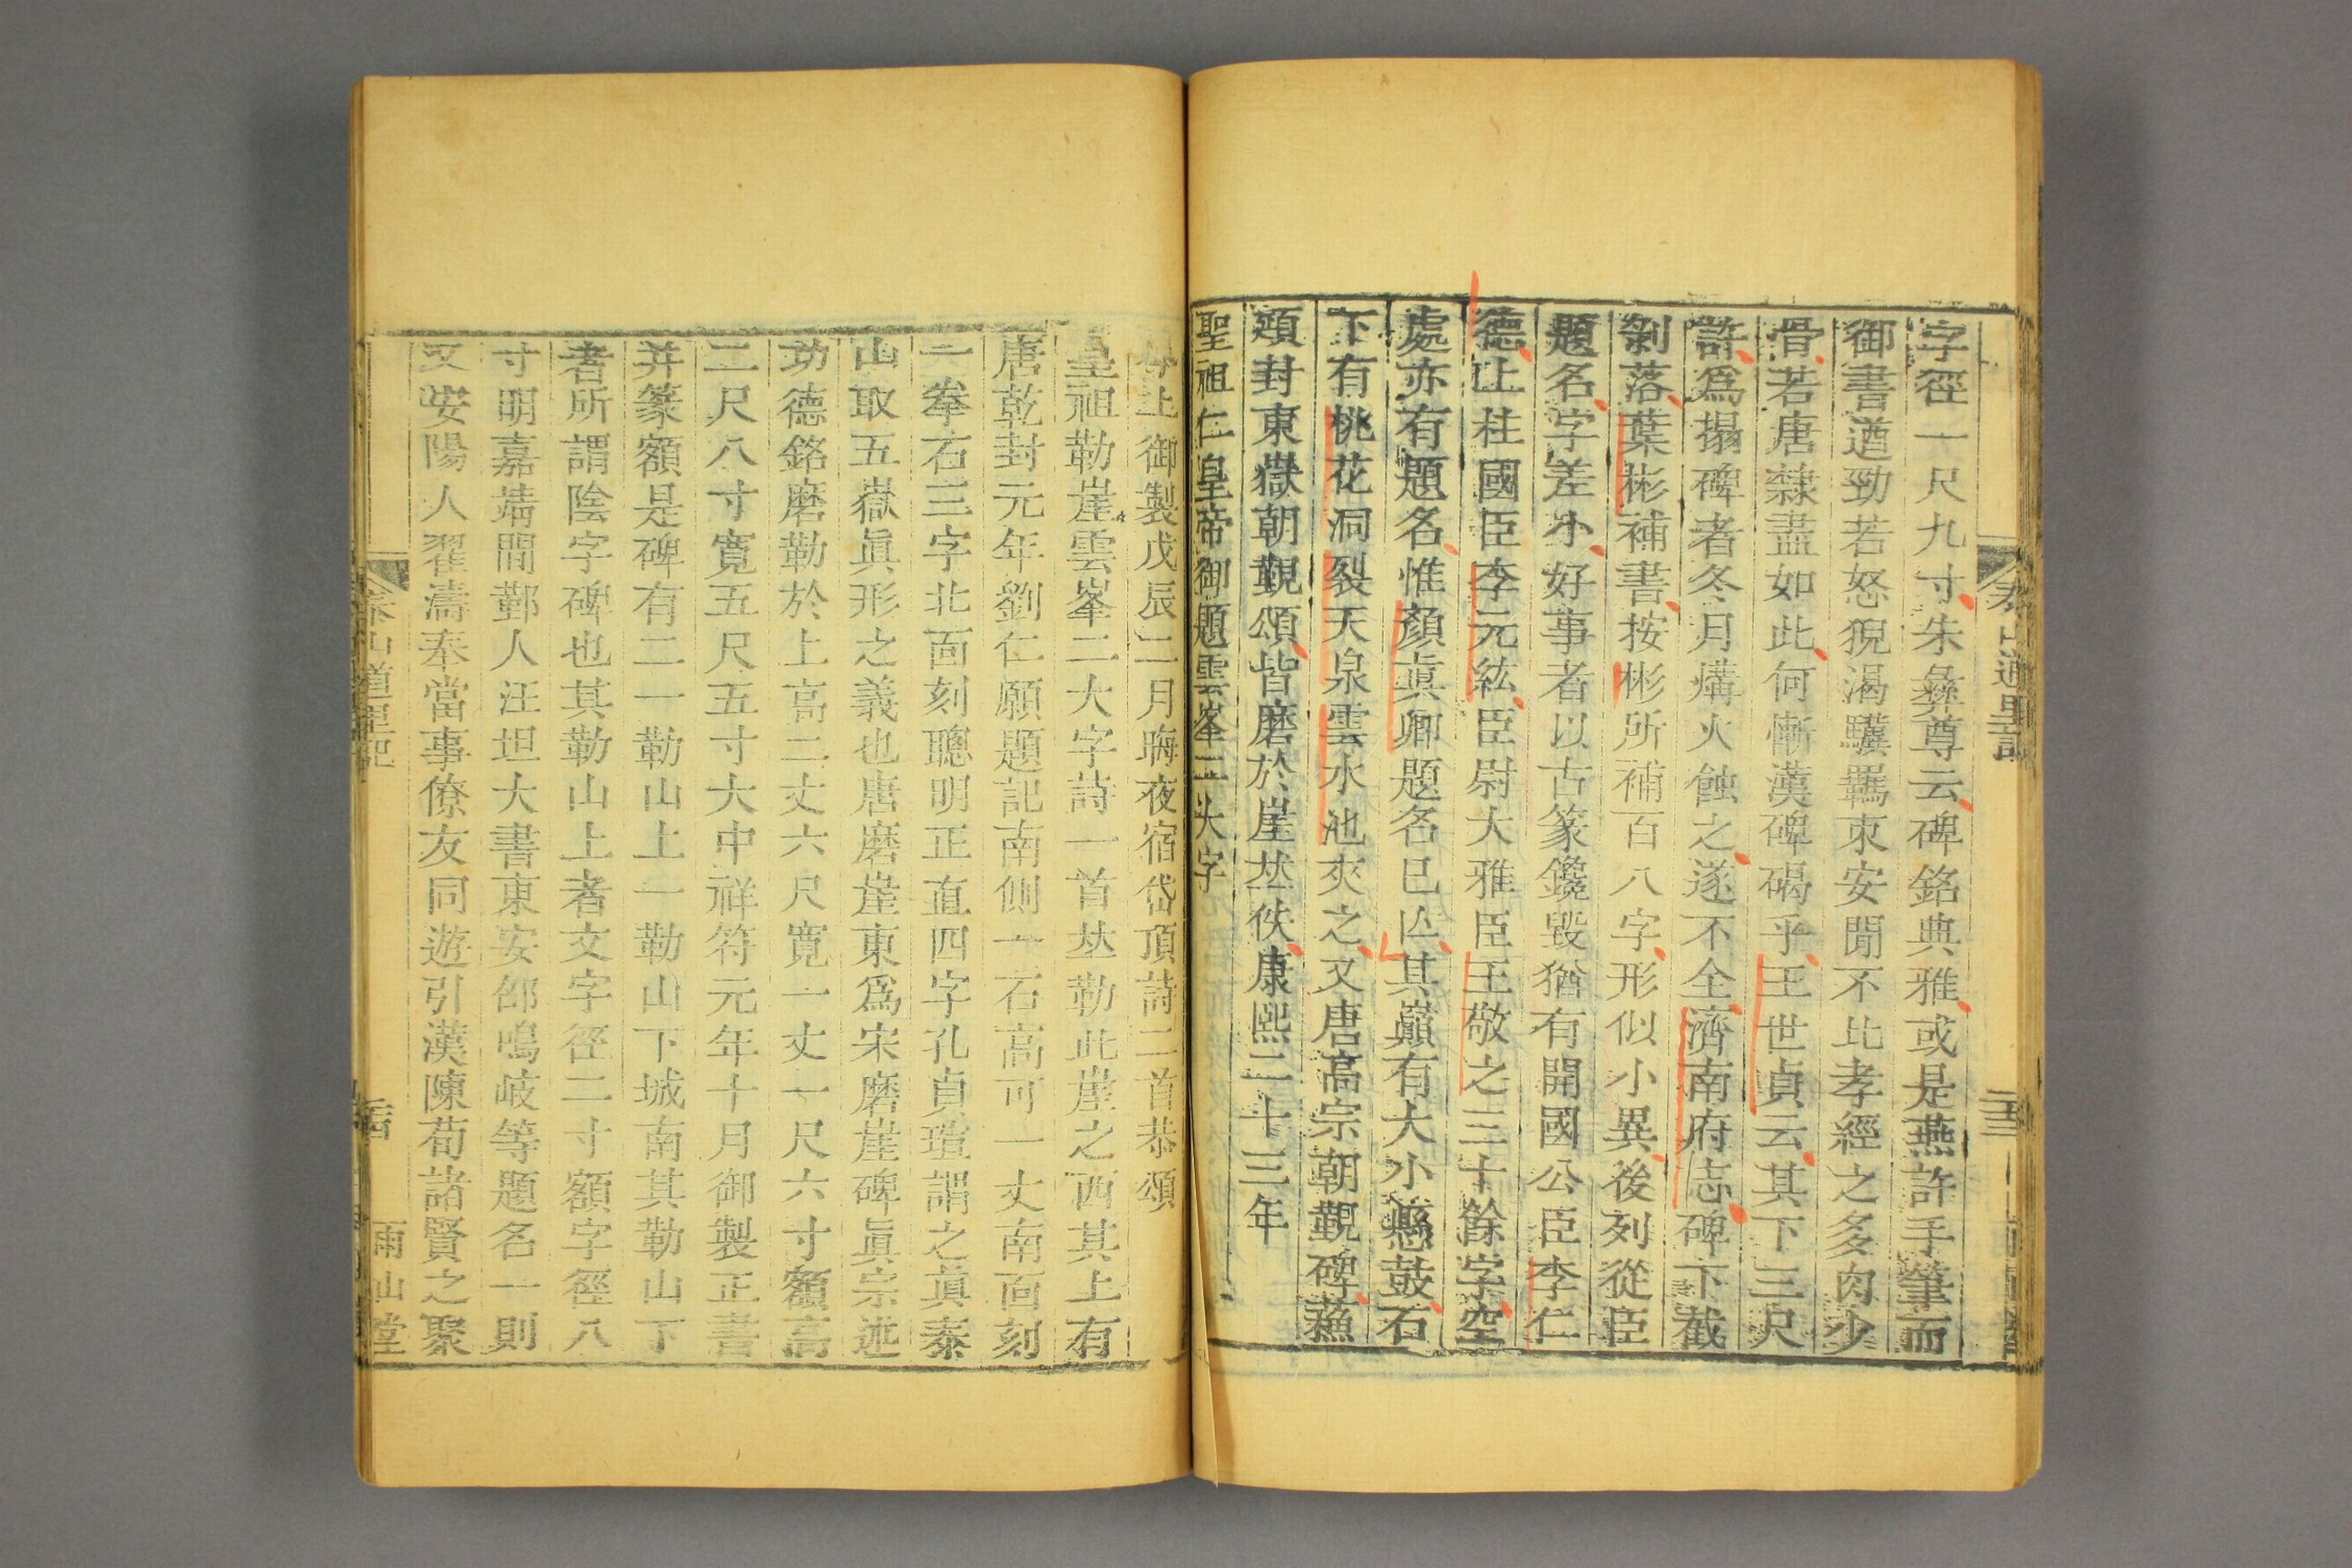 字徑一尺九寸朱彝尊云碑銘典雅或是燕許手筆而
御書遒勁若怒猊渴驥羈束安閒不比孝經之多肉少
骨若唐隸盡如此何慚漢碑碣乎王世貞云其下三尺
許爲搨碑者冬月燒火蝕之遂不全濟南府志碑下截
剝落葉彬補書按彬所補百八字形似小異後列從臣
題名字差小好事者以古篆鑱毀猶有開國公臣李仁
德上柱國臣李元紘臣尉大雅臣王敬之三十餘字空
處亦有題名惟顏眞卿題名已亾其巔有大小懸鼓石
下有桃花洞裂天泉雲水池夾之又唐高宗朝覲碑蘇
頲封東嶽朝覲頌皆磨於崖𠀤佚康熙二十三年
聖祖仁皇帝御題雲峯二大字
泰山道里記
二十三
今上御製戊辰二月晦夜宿岱頂詩二首恭頌
皇祖勒崖雲峯二大字詩一首𠀤勒此崖之西其上有
唐乾封元年劉仁願題記南側一石高可一丈南面刻
一拳石三字北面刻聰明正直四字孔貞瑄謂之眞泰
山取五嶽眞形之義也唐磨崖東爲宋磨崖碑眞宗述
功德銘磨勒於上高二丈六尺寬一丈一尺六寸額高
二尺八寸寬五尺五寸大中祥符元年十月御製正書
并篆額是碑有二一勒山上一勒山下城南其勒山下
者所謂陰字碑也其勒山上者文字徑二寸額字徑八
寸明嘉靖間鄞人汪坦大書東安邵鳴岐等題名一則
又安陽人翟濤奉當事僚友同遊引漢陳荀諸賢之聚
泰山道里記
雨山堂